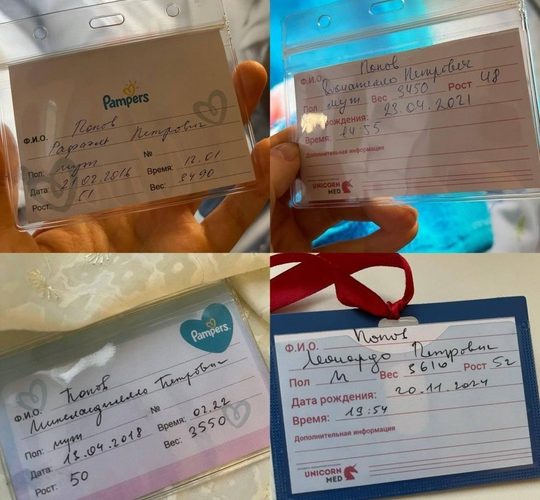 Pampers
Попов
Ф.И.О. Рафаэль Петрович
Пол: муж №
Дата: 21.02.2016 Время: 12.01
Рост: 51 Вес: 3490
Попов
Ф.И.О. Донателло Петрович
Пол муж Вес 3450 Рост 48
Дата рождения: 23.04.2021
Время: 14:55
Дополнительная информация
UNICORN
MED
Pampers
Попов
Ф.И.О. Микеланджело Петрович
Пол: муж №
Дата: 13.04.2018 Время: 02.22
Рост: 50 Вес: 3550
Попов
Ф.И.О. Леонардо Петрович
Пол М Вес 3616 Рост 52
Дата рождения: 20.11.2024
Время: 19:54
Дополнительная информация
UNICORN
MED